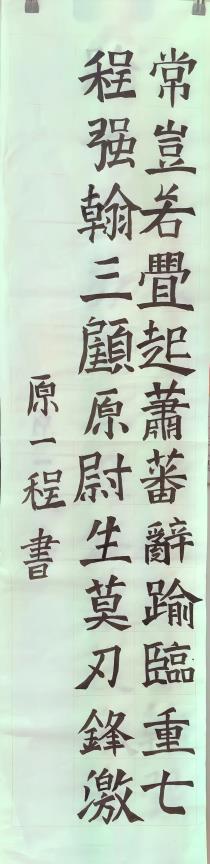 常豈若疊起蕭蕃辭踰臨重七
程强翰三顧原尉生莫刃鋒激
原一程書